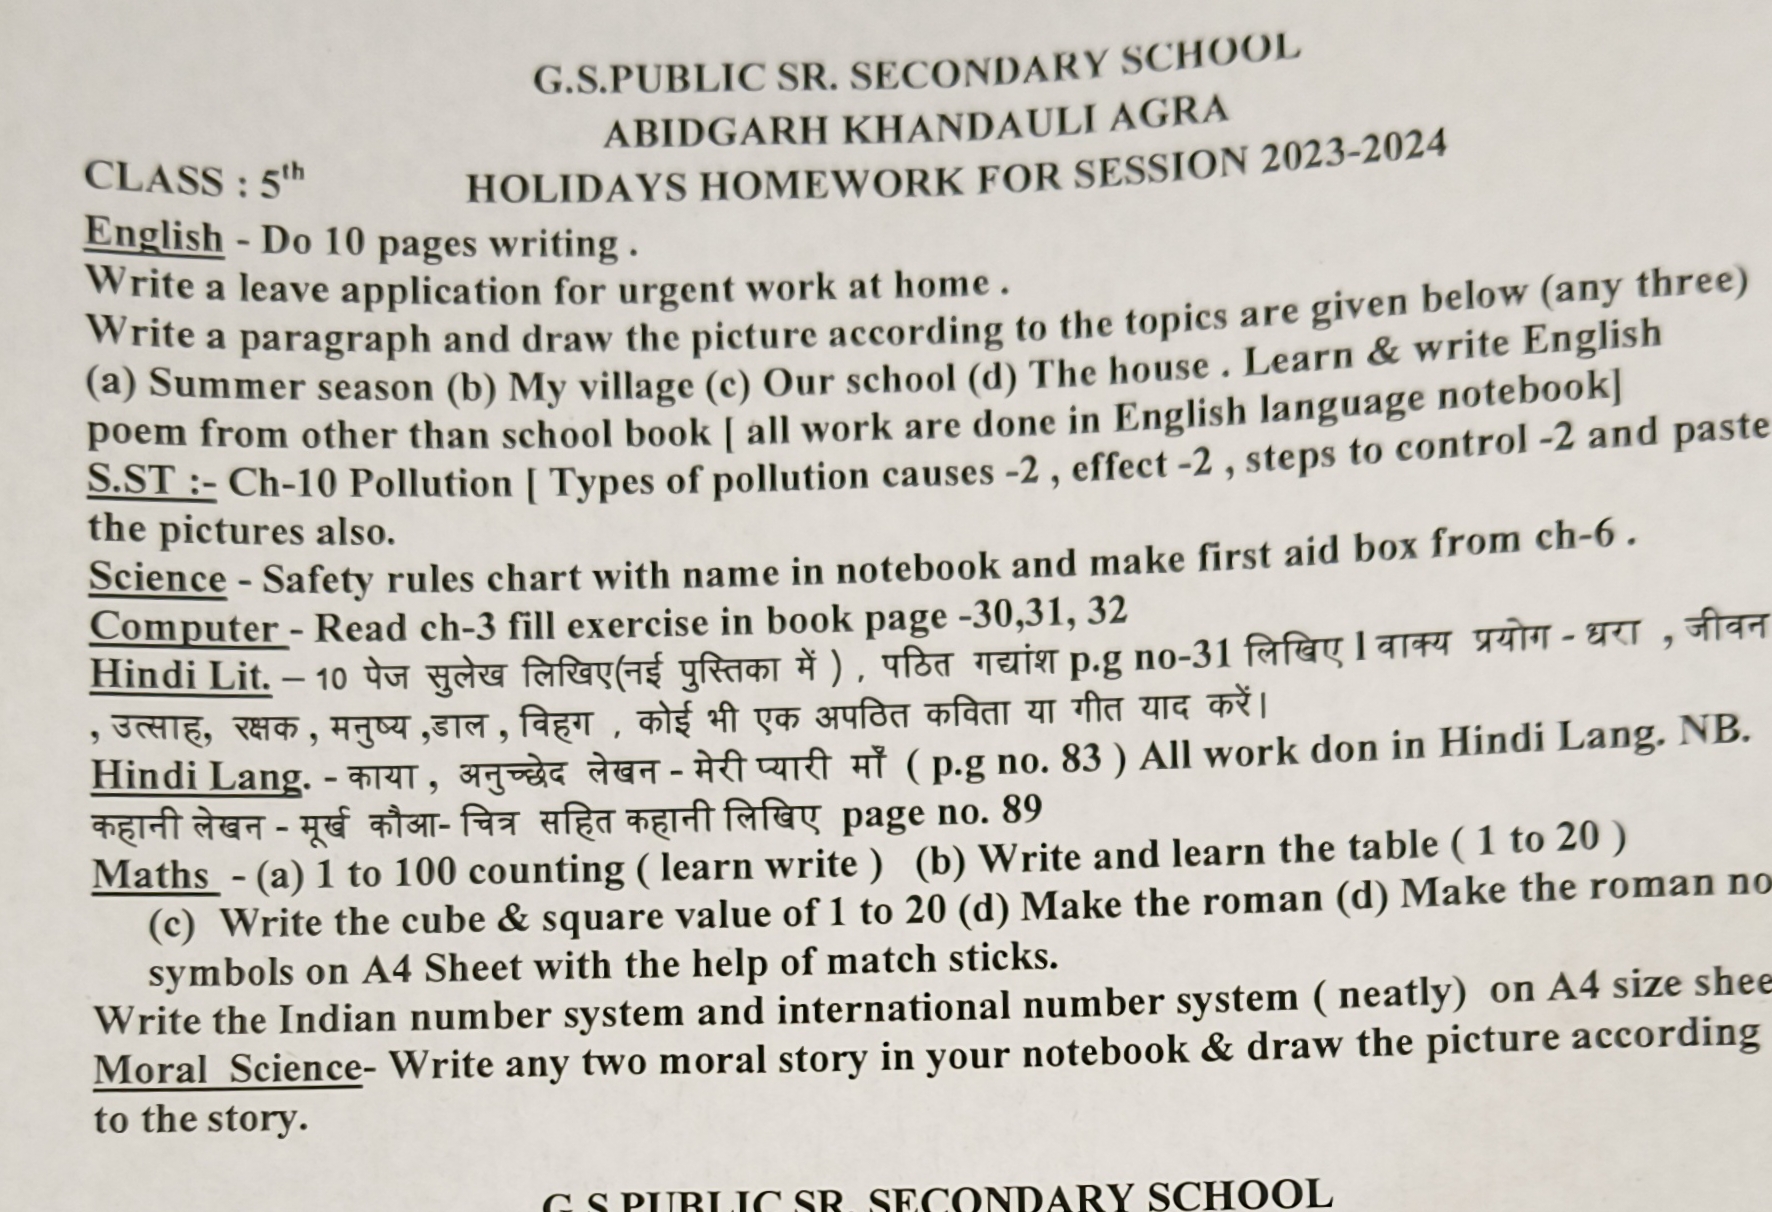 G.S.PUBLIC SR. SECONDARY SCHOOL
ABIDGARH KHANDAULI AGRA
CLASS : 5th HOLIDAYS HOMEWORK FOR SESSION 2023-2024
English - Do 10 pages writing .
Write a leave application for urgent work at home .
Write a paragraph and draw the picture according to the topics are given below (any three)
(a) Summer season (b) My village (c) Our school (d) The house . Learn & write English
poem from other than school book [ all work are done in English language notebook]
S.ST :- Ch-10 Pollution [ Types of pollution causes -2 , effect -2 , steps to control -2 and paste
the pictures also.
Science - Safety rules chart with name in notebook and make first aid box from ch-6 .
Computer - Read ch-3 fill exercise in book page -30,31, 32
Hindi Lit. – 10 पेज सुलेख लिखिए(नई पुस्तिका में ) , पठित गद्यांश p.g no-31 लिखिए l वाक्य प्रयोग - धरा , जीवन
, उत्साह, रक्षक , मनुष्य ,डाल , विहग , कोई भी एक अपठित कविता या गीत याद करें।
Hindi Lang. - काया , अनुच्छेद लेखन - मेरी प्यारी माँ ( p.g no. 83 ) All work don in Hindi Lang. NB.
कहानी लेखन - मूर्ख कौआ- चित्र सहित कहानी लिखिए page no. 89
Maths - (a) 1 to 100 counting ( learn write ) (b) Write and learn the table ( 1 to 20 )
(c) Write the cube & square value of 1 to 20 (d) Make the roman (d) Make the roman no
symbols on A4 Sheet with the help of match sticks.
Write the Indian number system and international number system ( neatly) on A4 size shee
Moral Science- Write any two moral story in your notebook & draw the picture according
to the story.
G.S.PUBLIC SR. SECONDARY SCHOOL